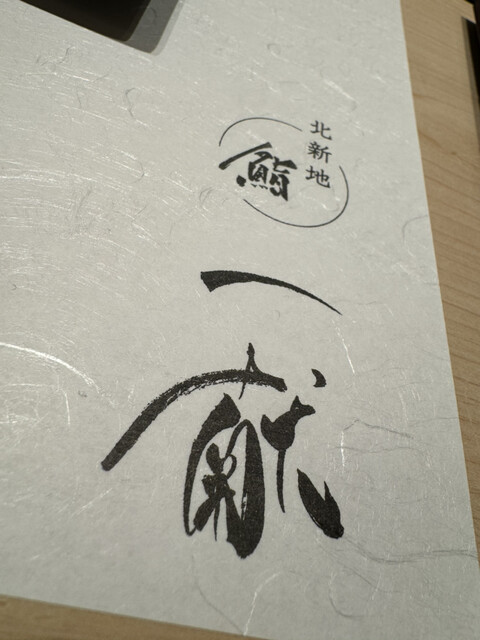 北新地
鮨
一献